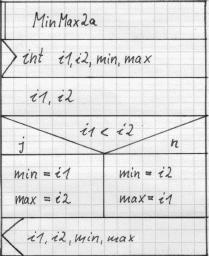 MinMax2a
int i1,i2, min, max
i1, i2
i1 < i2
j n
min = i1 min = i2
max = i2 max = i1
i1, i2, min, max